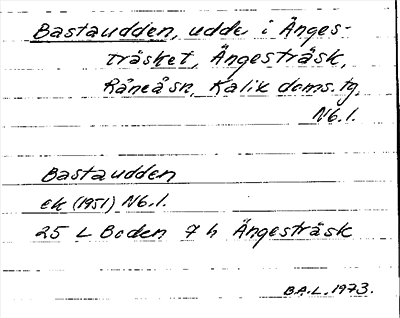 Bastaudden, udde i Änges-
träsket, Ängesträsk,
Råneå sn, Kalix doms.tg
Nb.l.
Bastaudden
ek (1951) Nb.l.
25 L Boden 7 h Ängesträsk
B.A.L. 1973.